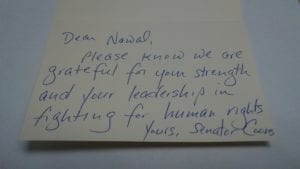 Dear Nawal,
Please know we are
grateful for your strength
and your leadership in
fighting for human rights
Yours, Senator Coons